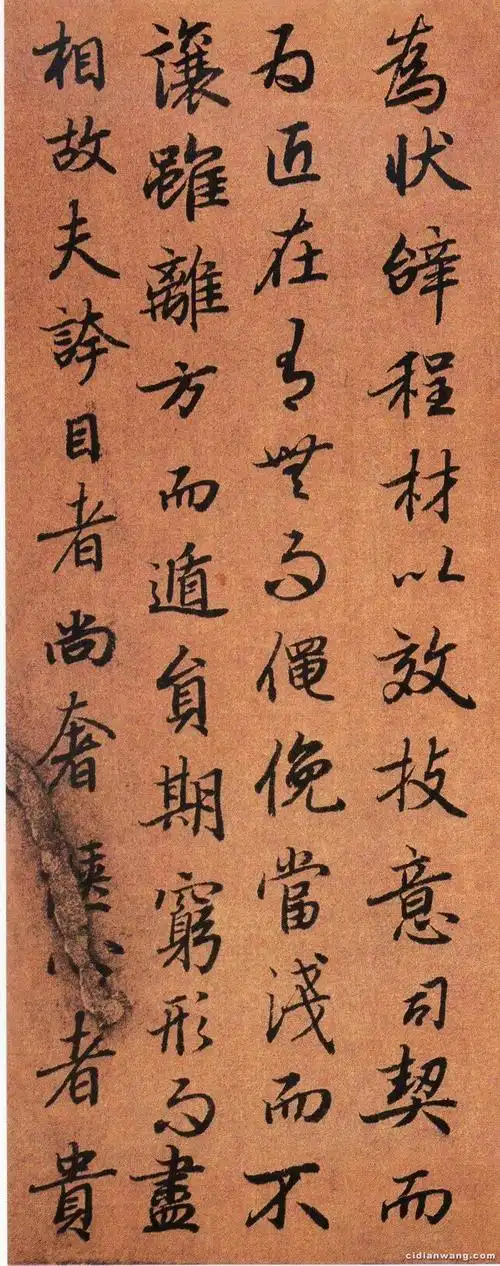 為狀辭程材以效技意司契而
為匠在有無而僶俛當淺而不
讓雖離方而遁員期窮形而盡
相故夫誇目者尚奢愜心者貴
cidianwang.com